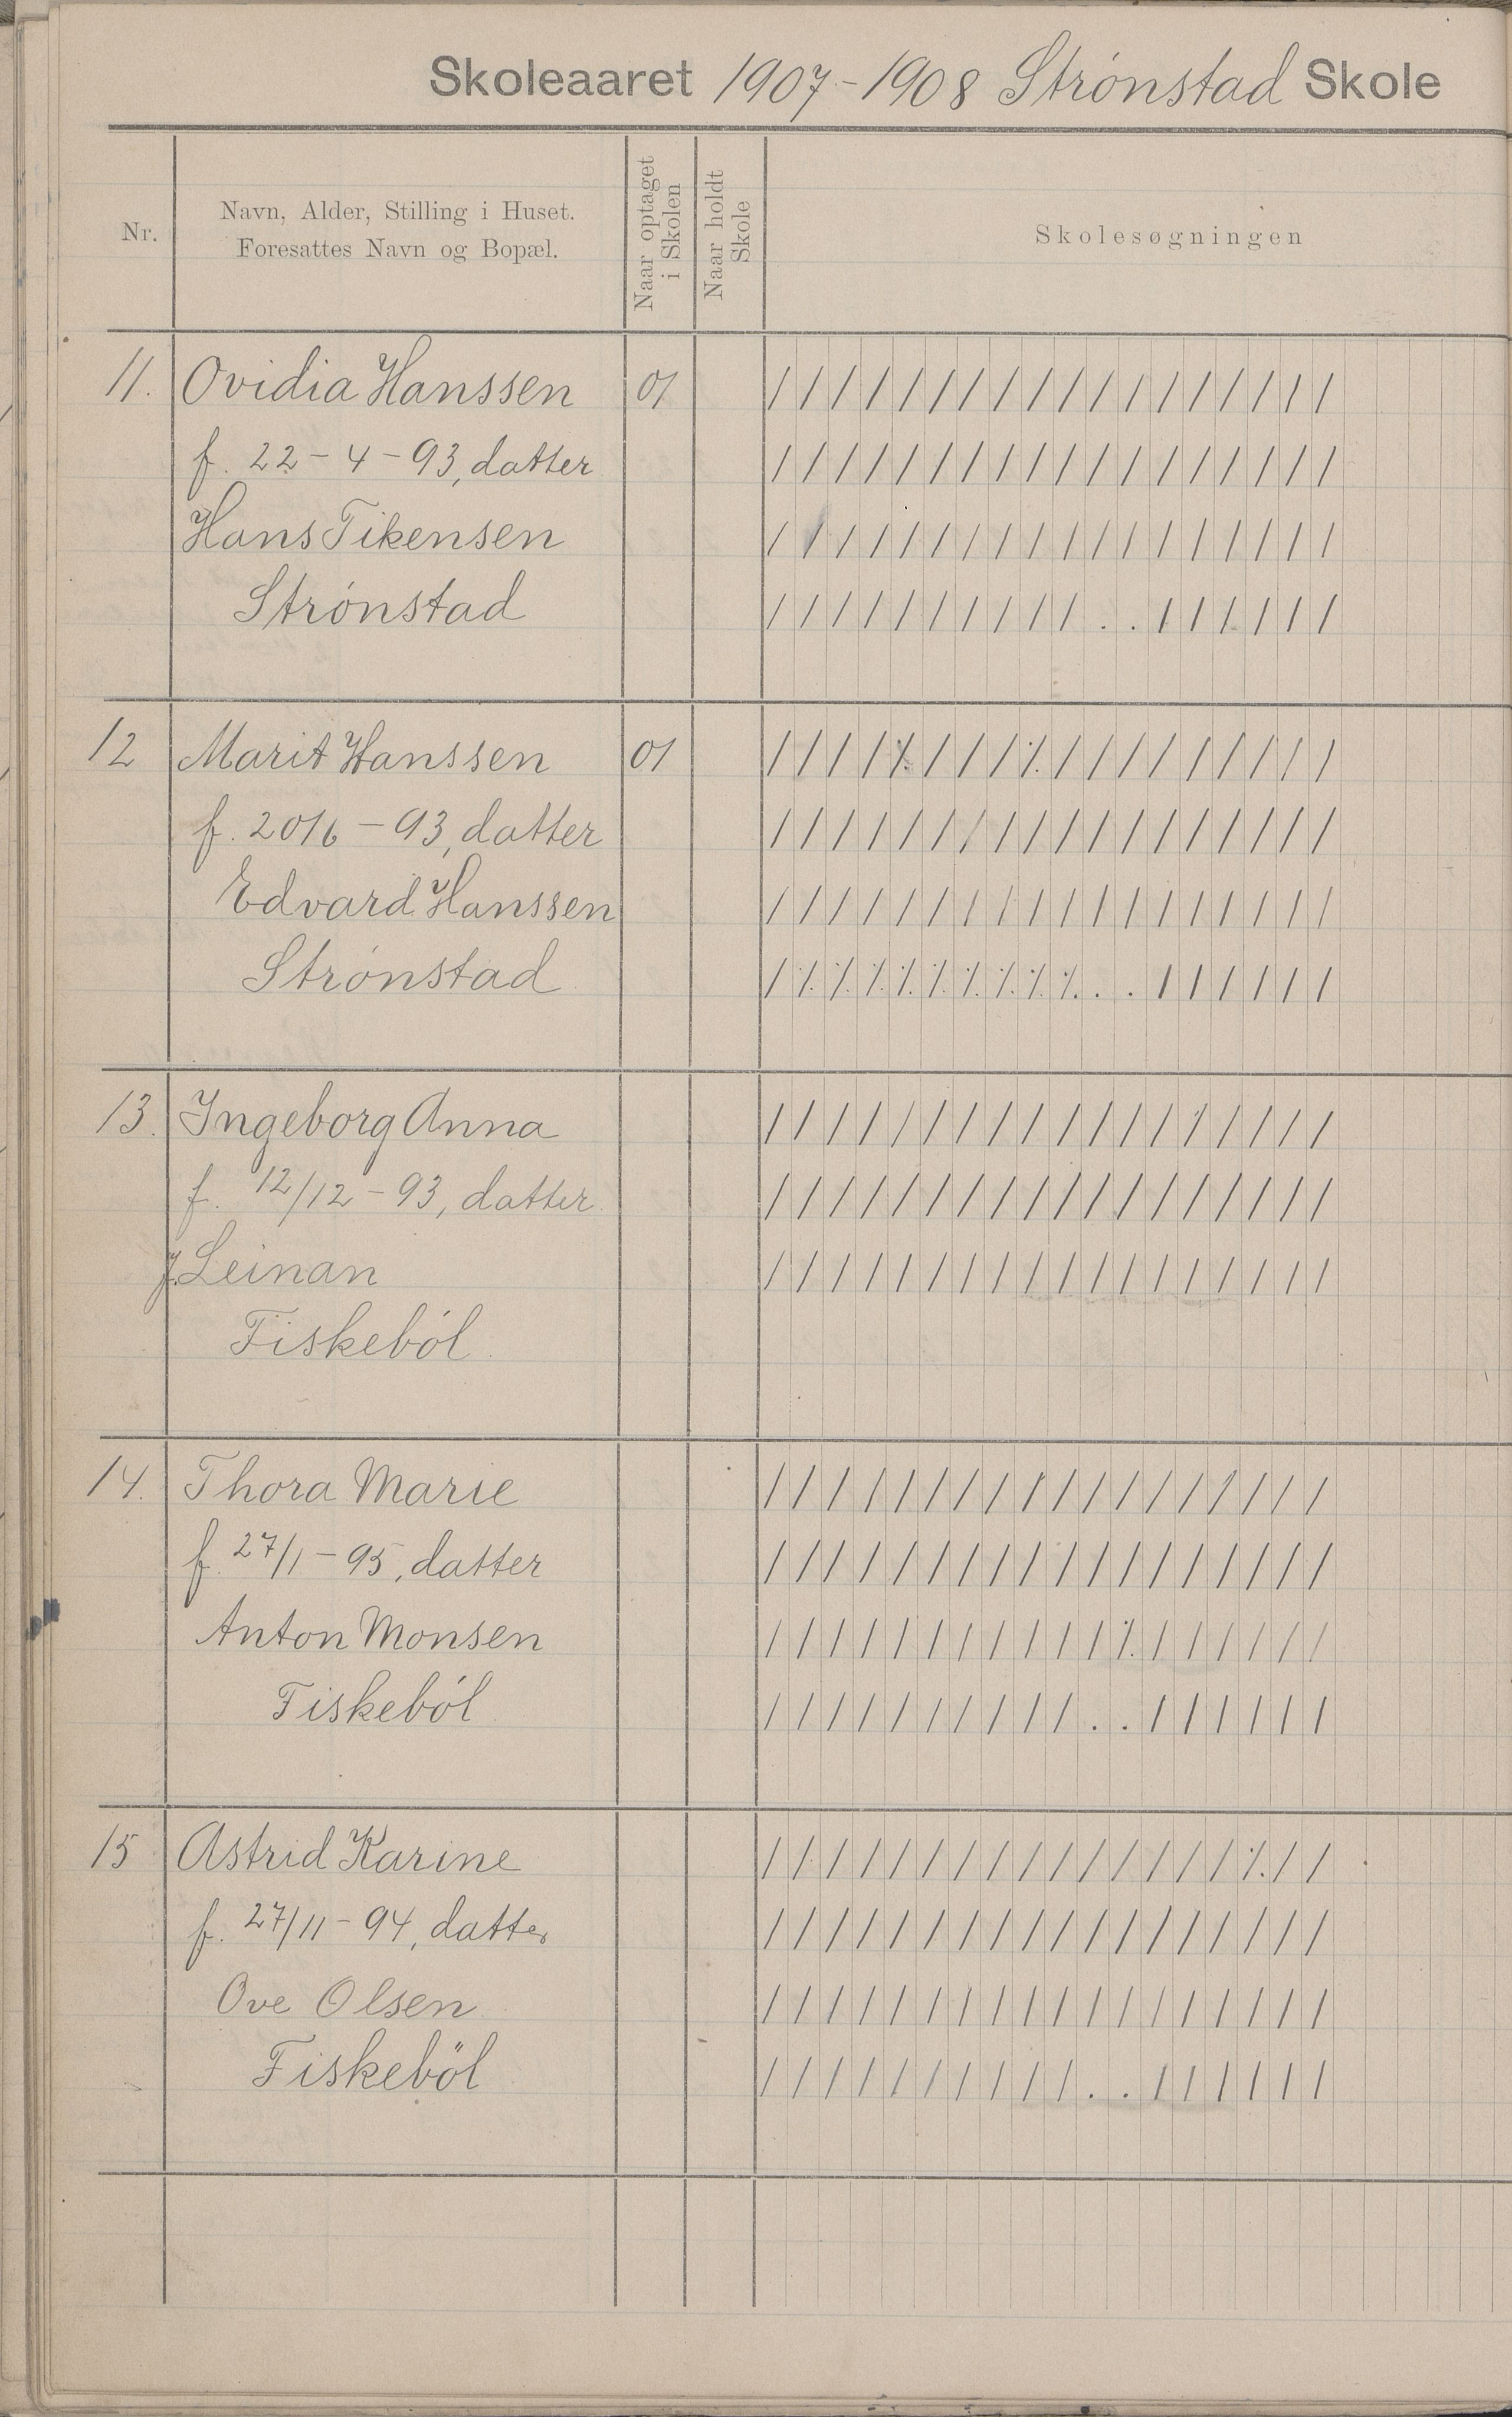 Skoleaaret 1907-1908 Strónstad Skole
Nr.
Navn, Alder, Stilling i Huset.
Foresattes Navn og Bopæl.
Naar optaget
i Skolen
Naar holdt
Skole
Skolesøgningen
11. Ovidia Hanssen 01 / / / / / / / / / / / / / / / / / /
f. 22-4-93, datter / / / / / / / / / / / / / / / / / /
Hans Tikensen / / / / / / / / / / / / / / / / / /
Strónstad / / / / / / / / / / . . / / / / / /
12 Marit Hanssen 01 / / / / ٪ / / / ٪ / / / / / / / / /
f. 20/6-93, datter / / / / / / / / / / / / / / / / / /
Edvard Hanssen / / / / / / / / / / / / / / / / / /
Strónstad / ٪ ٪ ٪ ٪ ٪ ٪ ٪ ٪ ٪ . . / / / / / /
13. Ingeborg Anna / / / / / / / / / / / / / / / / / /
f. 12/12-93, datter / / / / / / / / / / / / / / / / / /
J. Leinan / / / / / / / / / / / / / / / / / /
Fiskeból
14. Thora Marie / / / / / / / / / / / / / / / / / /
f. 27/1-95, datter / / / / / / / / / / / / / / / / / /
Anton Monsen / / / / / / / / / / / ٪ / / / / / /
Fiskeból / / / / / / / / / / . . / / / / / /
15 Astrid Karine / / / / / / / / / / / / / / / ٪ / /
f. 27/11-94, datter / / / / / / / / / / / / / / / / / /
Ove Olsen / / / / / / / / / / / / / / / / / /
Fiskeböl / / / / / / / / / / . . / / / / / /